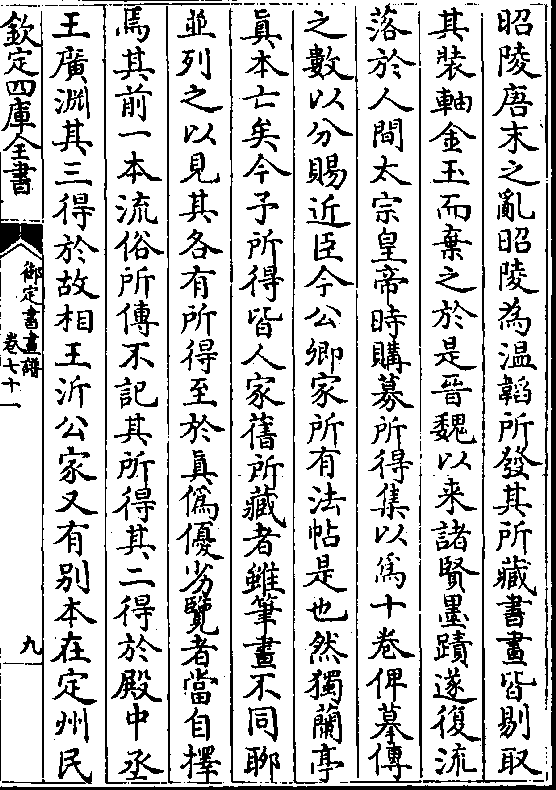 昭陵唐末之亂昭陵為温韜所發其所藏書畫皆剔取
其裝軸金玉而棄之於是晉魏以来諸賢墨蹟遂復流
落於人間太宗皇帝時購募所得集以為十卷俾摹傳
之數以分賜近臣今公卿家所有法帖是也然獨蘭亭
眞本亡矣今予所得皆人家舊所藏者雖筆畫不同聊
並列之以見其各有所得至於眞偽優劣覽者當自擇
焉其前一本流俗所傳不記其所得其二得於殿中丞
王廣淵其三得於故相王沂公家又有别本在定州民
欽定四庫全書
御定書畫譜
卷七十一
九